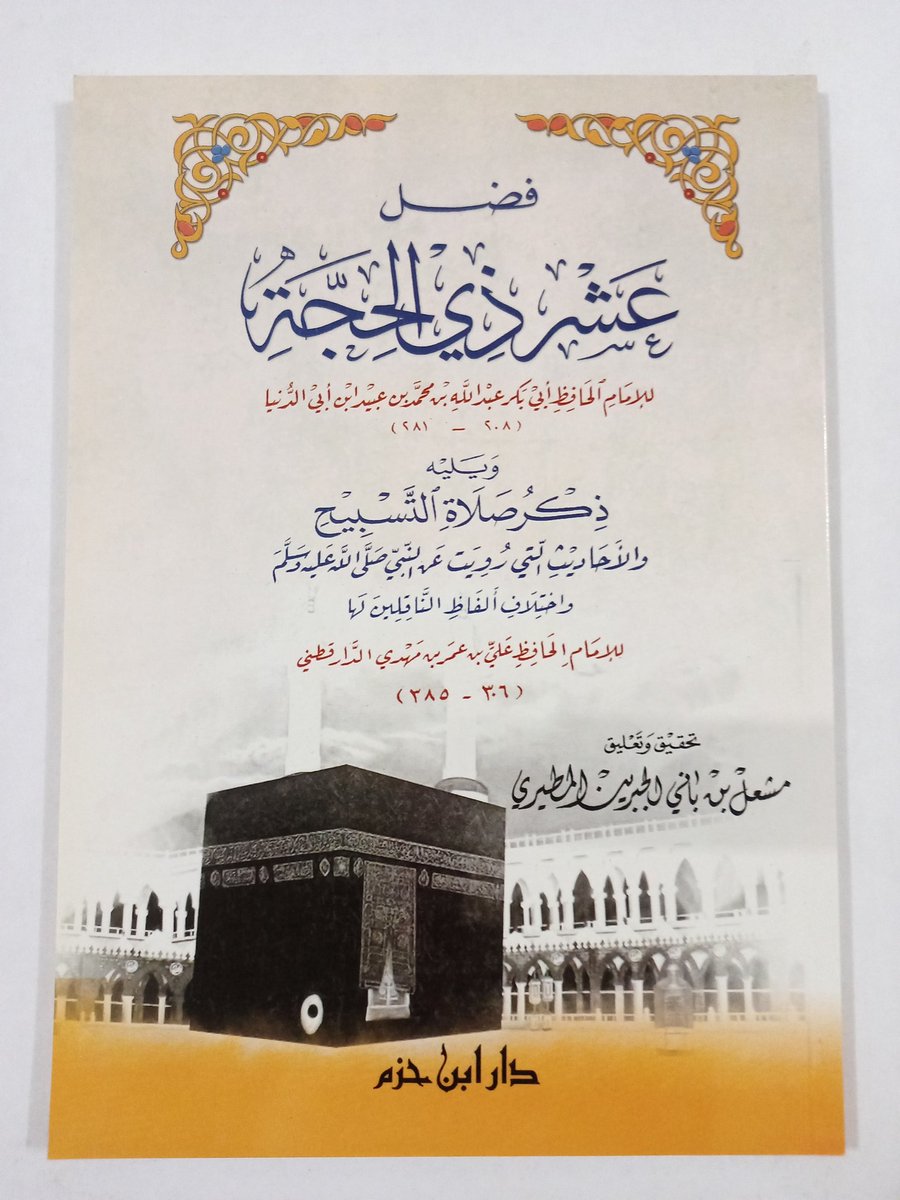 فضل
عَشْرِ ذِي الْحِجَّةِ
للإمَامِ الحَافِظِ أبي بكر عبد اللهِ بن محمَّد بن عبيد ابن أبي الدُّنيا
(٢٠٨ - ٢٨١)
وَيَليْه
ذِكْرُ صَلَاةِ التَّسْبِيْحِ
والأحَاديْثِ الّتي رُوِيَت عَن النَّبيّ صَلَّى اللَّه عَليْه وَسَلَّمَ
واختِلَافِ ألفَاظِ النَّاقِلِينَ لهَا
للإمَام الحَافِظِ عَليّ بن عمَر بن مَهْدي الدَّارقطني
(٣٠٦ - ٣٨٥)
تحقيْق وَتَعْليْق
مشعل بن باني الجبرين المطيري
دار ابن حزم